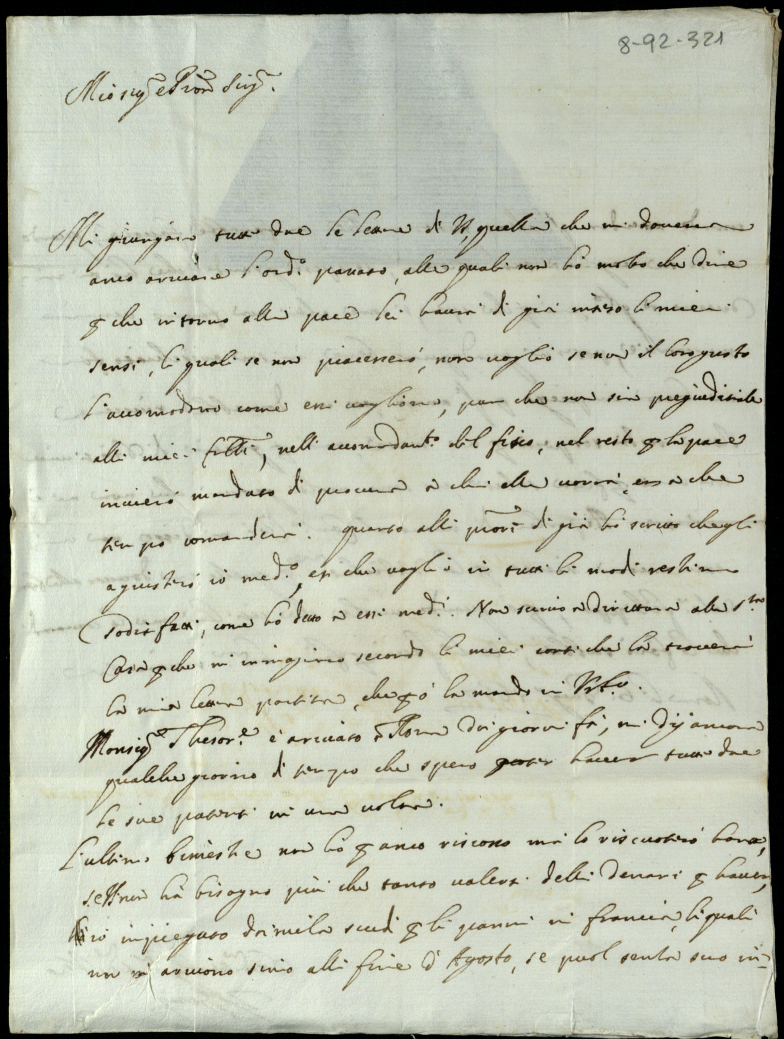 8-92-321
Mio sig.re e Pron. Sing.
Mi giungano tutte due le lettere di VS, quella che mi doveva
anco arrivare l'ord.o passato, alle quali non hò molto che dire
che intorno alla pace lei haverà di già inteso li miei
sensi, li quali se non piacessero, non voglio se non il loro gusto
l'accomodino come essi vogliono, pur che non sia pregiuditiale
alli miei fratt.i, nelli accomodam.ti del fisco, nel resto la pace
invierò mandato di procura à chi ella vorrà, essa che
tempo comanderà. quanto alli di già hò scritto che gli
aquisterò io med.o, essi che voglio in tutti li modi restino
sodisfatti, come hò detto à essi med.i. Non scrivo à dirittura alla S.ra
Casa che mi immagino secondo li miei conti che la troverà
la mia lettera partita, che la mando in
Monsig.re Thesor.re è arrivato à Roma doi giorni fà, mi dij ancora
qualche giorno di tempo che spero haver tutte due
le sue patenti in una volta.
L'ultimo bimestre non hò anco riscosso mà lo riscuoterò hora,
se VS non hà bisogno più che tanto valersi delli denari haver
io impiegato doi mila scudi li panni in francia, li quali
non mi arrivono sino alli fine d'Agosto, se puol senza suo in-